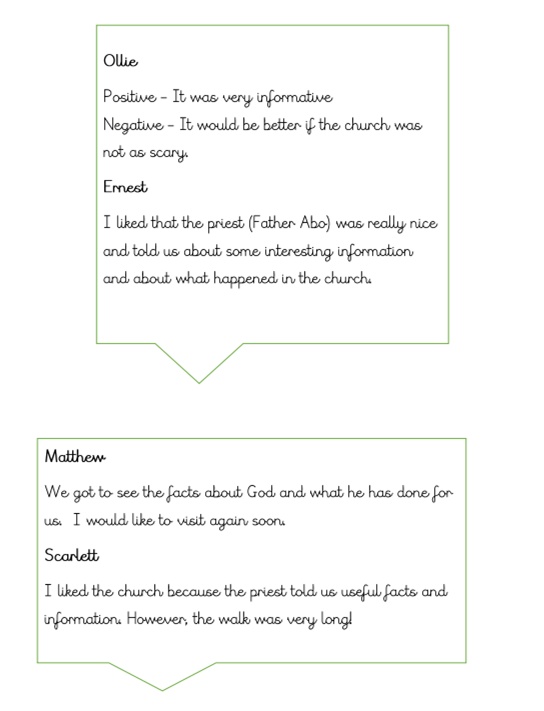 Ollie
Positive – It was very informative
Negative – It would be better if the church was
not as scary.
Ernest
I liked that the priest (Father Abo) was really nice
and told us about some interesting information
and about what happened in the church.
Matthew
We got to see the facts about God and what he has done for
us.  I would like to visit again soon.
Scarlett
I liked the church because the priest told us useful facts and
information. However, the walk was very long!